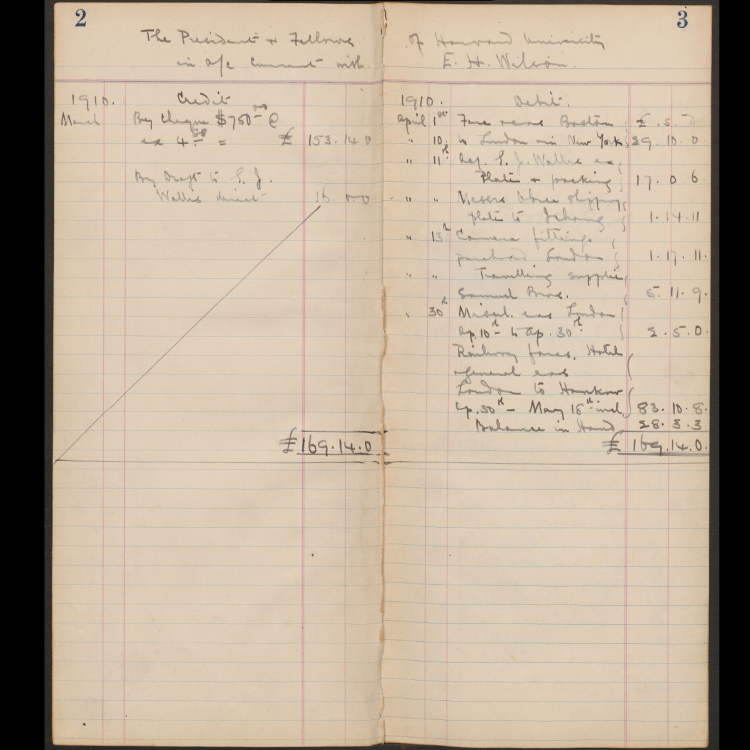 2
The President & Fellows
in a/c current with
1910. Credit
March By Cheque $750 @
ex 4 = £ 153.14.0
By Draft to
Wallis direct 16 0 0
£ 169.14.0
3
of Harvard University
E. H. Wilson
1910. Debit.
April 1st Boston £
" 10 to London via New York 29.10.0
" 11th E. J. Wallis
Plate & packing 17.0.6
" " slipping
plate to 1.14.11
" 13th Camera fittings
purchased London 1.17.11.
" " Travelling supplies
Samuel Bros. 5.11.9.
" 30th London
Ap. 10th to Ap. 30th 2.5.0.
Railway fares, Hotel
& general exs
London to Hankow
Ap. 30th - May 18th incl. 83.10.8.
Balance in Hand 28.3.3
£ 169.14.0.